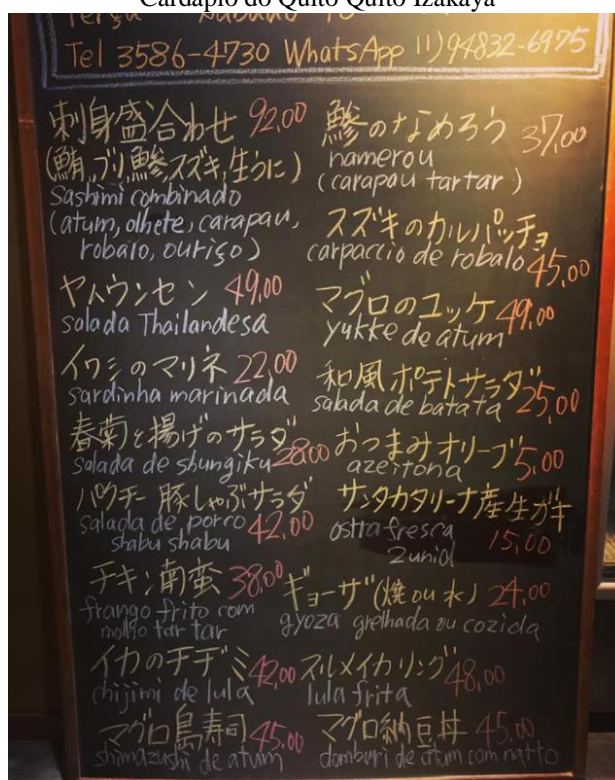 Cardápio do Quito Quito Izakaya
Tel 3586-4730 WhatsApp 11)94832-6975
刺身盛合わせ 92,00
(鮪,ブリ,鯵,スズキ,生うに)
sashimi combinado
(atum, olhete, carapau,
robalo, ouriço)
ヤムウンセン 49,00
salada Thailandesa
イワシのマリネ 22,00
sardinha marinada
春菊と揚げのサラダ
salada de shungiku 28,00
パクチー豚しゃぶサラダ
salada de porco 42,00
shabu shabu
チキン南蛮 38,00
frango frito com
molho tar tar
イカのチヂミ 42,00
chijimi de lula
マグロ島寿司 45,00
shimazushi de atum
鯵のなめろう 37,00
namerou
(carapau tartar)
スズキのカルパッチョ
carpaccio de robalo 45,00
マグロのユッケ 49,00
yukke de atum
和風ポテトサラダ
salada de batata 25,00
おつまみオリーブ 5,00
azeitona
サンタカタリーナ産生ガキ
ostra fresca 15,00
2 unid
ギョーザ(焼 ou 水) 24,00
gyoza grelhada ou cozida
スルメイカリング 48,00
lula frita
マグロ納豆丼 45,00
domburi de atum com natto